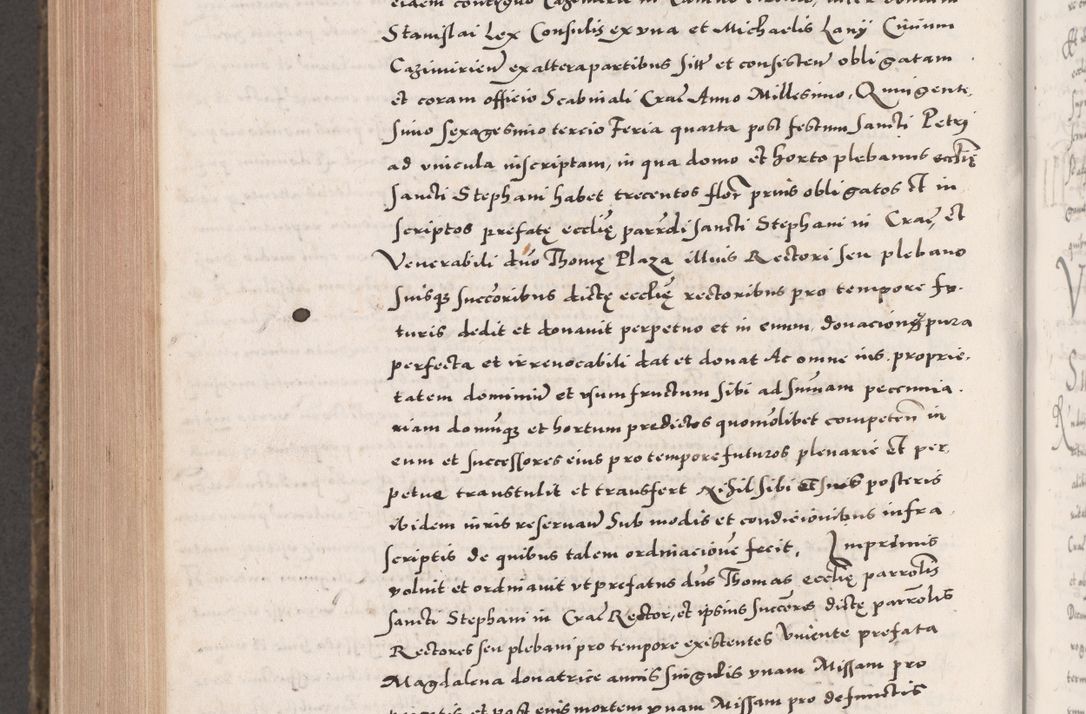 Stanislai Lex Consulis ex una et Michaelis Lany Civium
Cazimirien ex altera partibus sitt et consisten obligatam
et coram officio Scabinali Crac Anno Millesimo, Quingente,
simo sexagesimo tercio Feria quarta post festum Sancti Petri
ad vincula inscriptam, in qua domo et horto plebanus ecclię
sancti Stephani habet trecentos flor prius obligatos et in
scriptos prefatę ecclię parrdi sancti Stephani in Crac, et
Venerabili dno Thomę Plaza illius Rectori seu plebano
suisq succoribus dictę ecclię rectoribus pro tempore fu.
turis dedit et donavit perpetuo et in evum, donacione pura
perfecta et irrevocabili dat et donat Ac omne ius, proprie,
tatem dominiu et usumfructum sibi ad summam peccunia.
riam domusq et hortum predictos quomolibet competen in
eum et successores eius pro tempore futuros plenarie et per
petue transtulit et transfert Nihil sibi et suis posteris
ibidem iuris reservan Sub modis et condicionibus infra
scriptis de quibus talem ordinacione fecit, Imprimis
voluit et ordinavit ut prefatus dns Thomas ecclię parrolis
sancti Stephani in Crac Rector, et ipsius succores dictę parrolis
Rectores seu plebani pro tempore existentes vivente prefata
Magdalena donatrice annis singulis unam Missam pro
et post eius mortem unam Missam pro defunctis